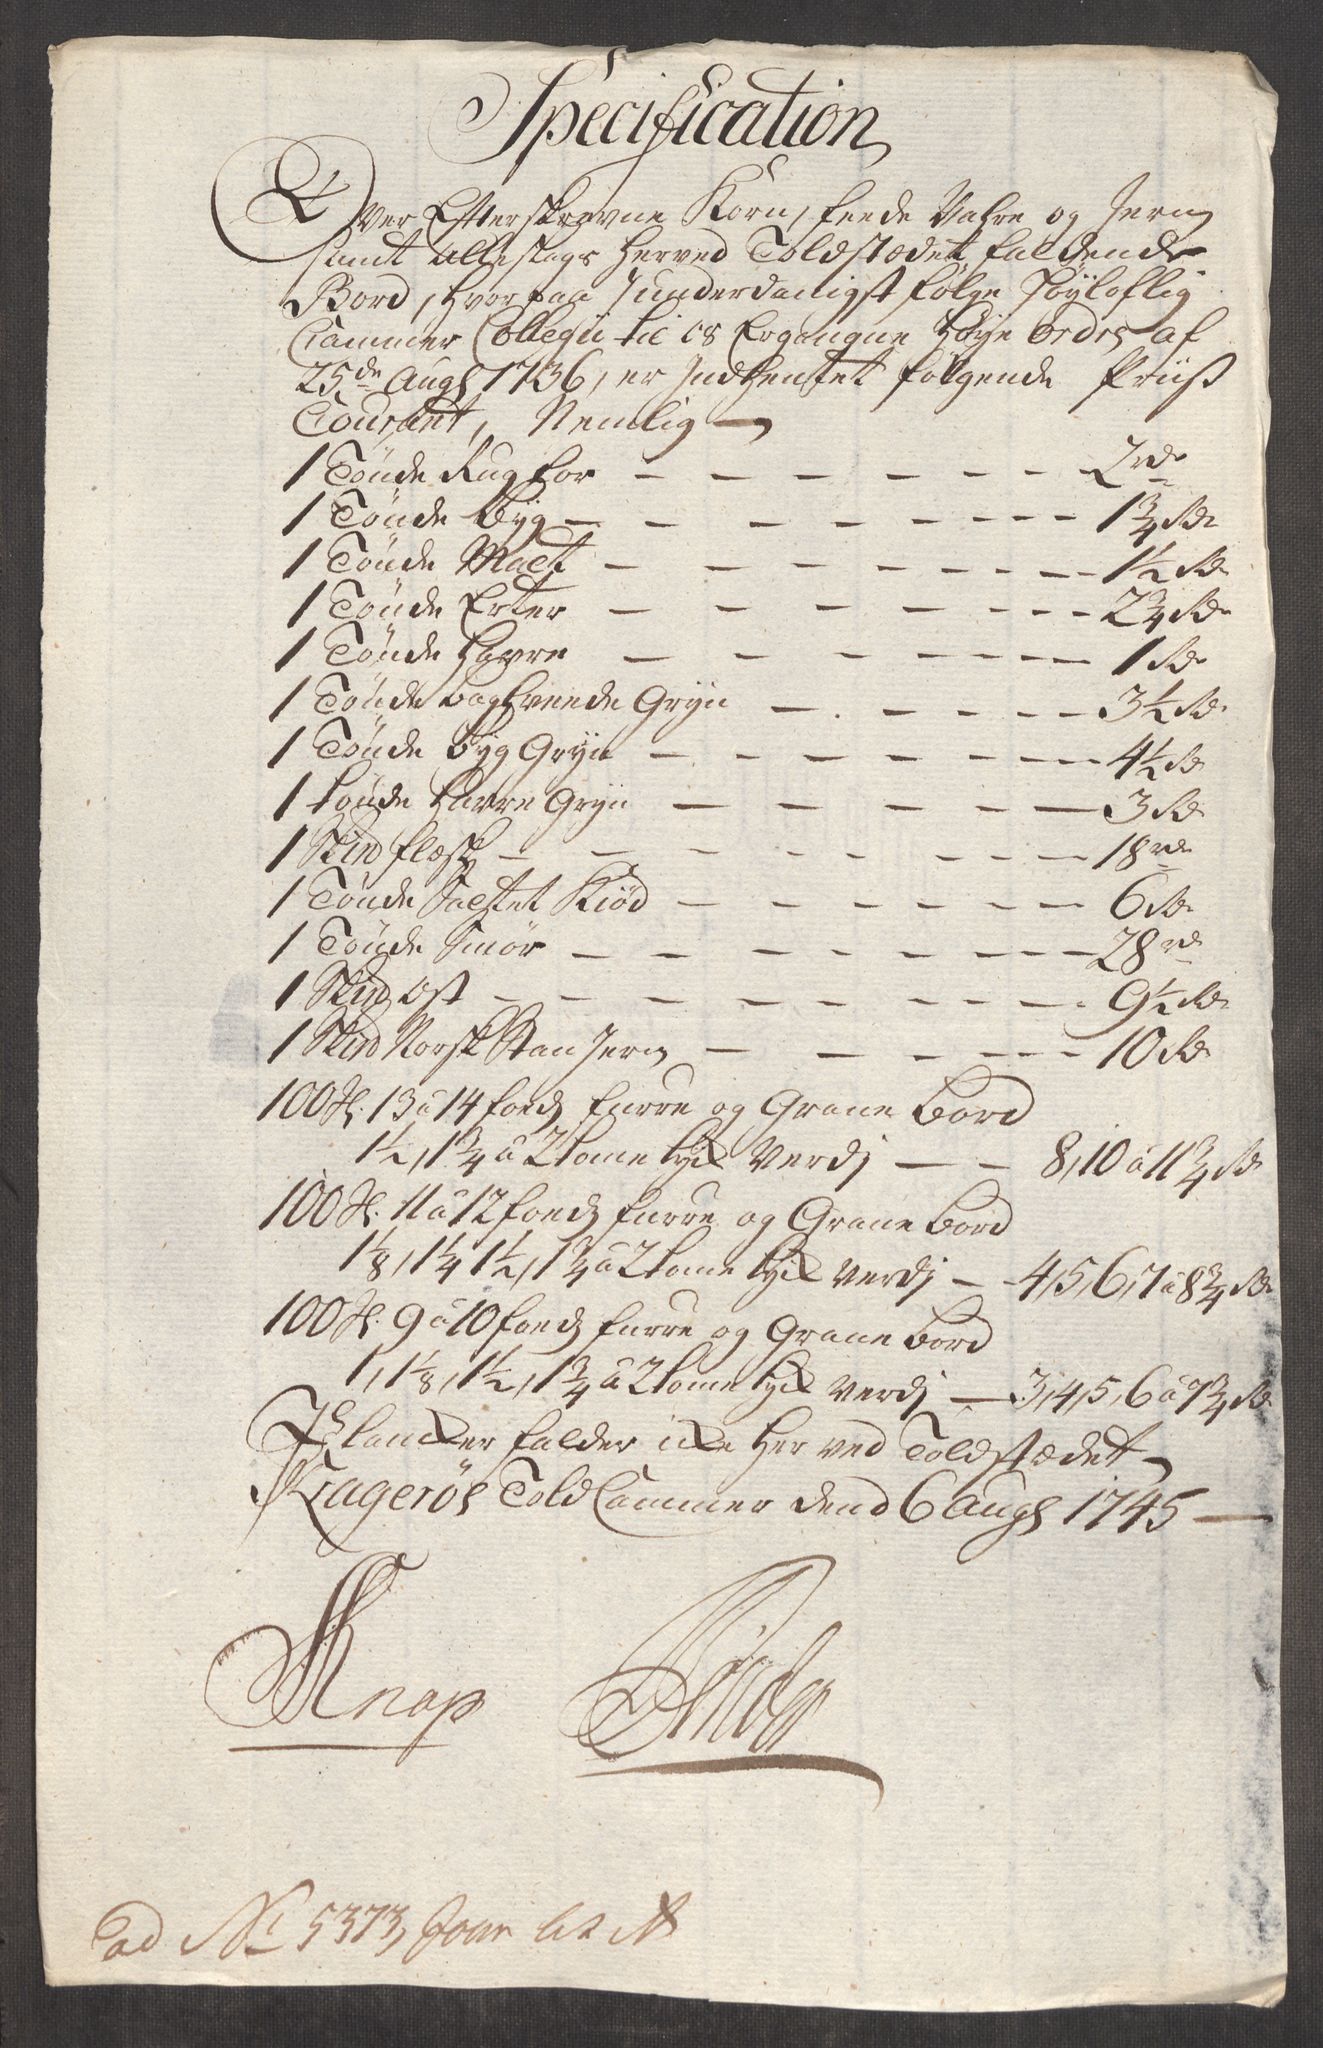 Specification
Over Efterskrevne Korn, feede Vahre og Jern,
samt alleslags herved Toldstædet faldende
Bord, hvorpaa J underdanigst følge Höyloflig
Cammer Collegii til os Ergangne høye ordre af
25de Aug 1736, er Jndhentet følgende Priiß
Courant, Nemlig
1 Tönde Rug for - - - - - - 2 rd
1 Tönde Byg - - - - - - - 1 3/4 Rd
1 Tönde Malt - - - - - - - 1 1/2 Rd
1 Tönde Erter - - - - - - - 2 3/4 Rd
1 Tönde Havre - - - - - - - 1 Rd
1 Tönde Boghveede Gryn - - - - - 3 1/2 Rd
1 Tönde Byg Gryn - - - - - - 4 1/2 Rd
1 tönde Havre Gryn - - - - - 3 Rd
1 Skƚd flesk - - - - - - - 18 rd
1 Tönde Saltet Kiød - - - - - - 6 Rd
1 Tönde Smör - - - - - - - 28 rd
1 Skƚd ost - - - - - - - 9 1/2 Rd
1 Skƚd Norsk Stan Jern - - - - - 10 Rd
100 st. 13 a 14 foeds furre og Grane Bord
1 1/2, 1 3/4 a 2 tome tyk Verdj - - 8, 10 a 11 3/4 Rd
100 st. 11 a 12 foeds furre og Grane Bord
1 1/8, 1 1/4 1 1/2, 1 3/4 a 2 tome tyk Verdj - 4, 5, 6, 7 a 8 3/4 Rd
100 st. 9 a 10 foeds furre og Grane Bord
1, 1 1/8, 1 1/2, 1 3/4 a 2 tome tyk Verdj - 3, 4, 5, 6 a 7 3/4 Rd
Plancker falder icke her ved Toldstædet
Kragerøe Told Cammer dend 6 Aug 1745
Knap
ad No 5373, Jour lit A